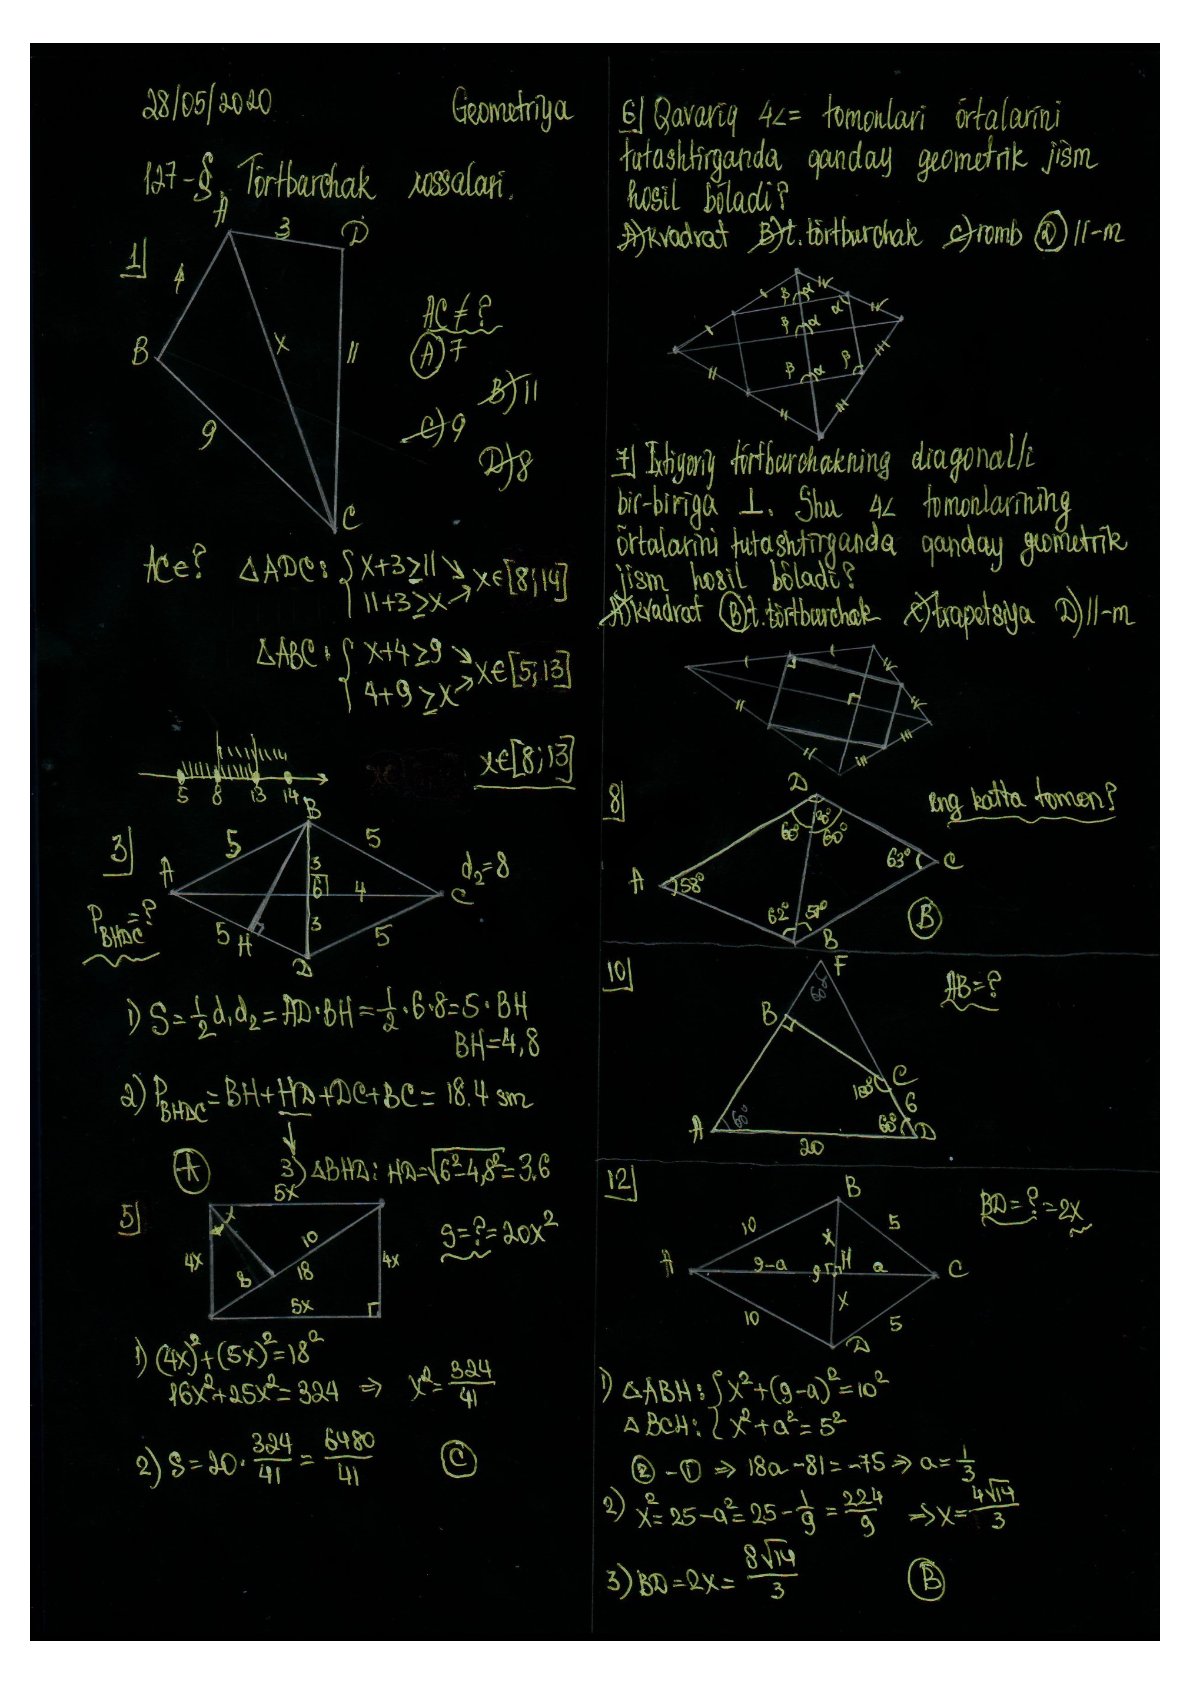 28/05/2020 Geometriya
127-§. Tõrtburchak xossalari.
1|
A 3 D
4
B x 11
9
C
AC ≠ ?
A) 7
B) 11
C) 9
D) 8
AC∈? △ADC: { x+3≥11
11+3≥x → x∈[8;14]
△ABC: { x+4≥9
4+9≥x → x∈[5;13]
5 8 13 14
x∈[8;13]
3|
B
5 5
A 3 6 4 C
5 H 3 5
D
d₂=8
P_BHDC=?
1) S=½d₁d₂=AD·BH=½·6·8=5·BH
BH=4,8
2) P_BHDC=BH+HD+DC+BC=18.4 sm
A 3) △BHD: HD=√(6²-4,8²)=3.6
5|
5x
x
4x 10 4x
8 18
5x
S=?=20x²
1) (4x)²+(5x)²=18²
16x²+25x²=324 ⇒ x²=324/41
2) S=20·324/41=6480/41 C
6| Qavariq 4∠= tomonlari õrtalarini
tutashtirganda qanday geometrik jism
hosil bõladi?
A) kvadrat B) t.tõrtburchak C) romb D) ||-m
β α α
β α
β α β
7| Ixtiyoriy tõrtburchakning diagonal/i
bir-biriga ⊥. Shu 4∠ tomonlarining
õrtalarini tutashtirganda qanday geometrik
jism hosil bõladi?
A) kvadrat B) t.tõrtburchak C) trapetsiya D) ||-m
8|
eng katta tomon?
D
60° 60°
63° C
A 58°
62° 57°
B
B
10|
AB=?
F
60°
B
C
6
A 60° 60° D
20
12|
BD=?=2x
B
10 5
x
A 9-a 9 H a C
x
10 5
D
1) △ABH: { x²+(9-a)²=10²
△BCH: { x²+a²=5²
②-① ⇒ 18a-81=-75 ⇒ a=1/3
2) x²=25-a²=25-1/9=224/9 ⇒ x=4√14/3
3) BD=2x=8√14/3 B